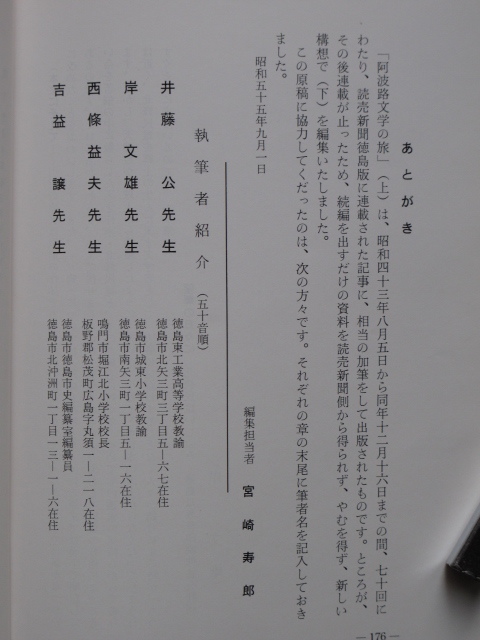 あとがき
「阿波路文学の旅」(上)は、昭和四十三年八月五日から同年十二月十六日までの間、七十回に
わたり、読売新聞徳島版に連載された記事に、相当の加筆をして出版されたものです。ところが、
その後連載が止ったため、続編を出すだけの資料を読売新聞側から得られず、やむを得ず、新しい
構想で(下)を編集いたしました。
この原稿に協力してくだったのは、次の方々です。それぞれの章の末尾に筆者名を記入しておき
ました。
昭和五十五年九月一日
編集担当者 宮崎寿郎
執筆者紹介(五十音順)
井藤 公先生
徳島東工業高等学校教諭
徳島市北矢三町三丁目五―六七在住
岸 文雄先生
徳島市城東小学校教諭
徳島市南矢三町一丁目五―一六在住
西條益夫先生
鳴門市堀江北小学校校長
板野郡松茂町広島字丸須一―二一八在住
吉益 譲先生
徳島市徳島市史編纂室編纂員
徳島市北沖洲町一丁目一三―一―六在住
―176―